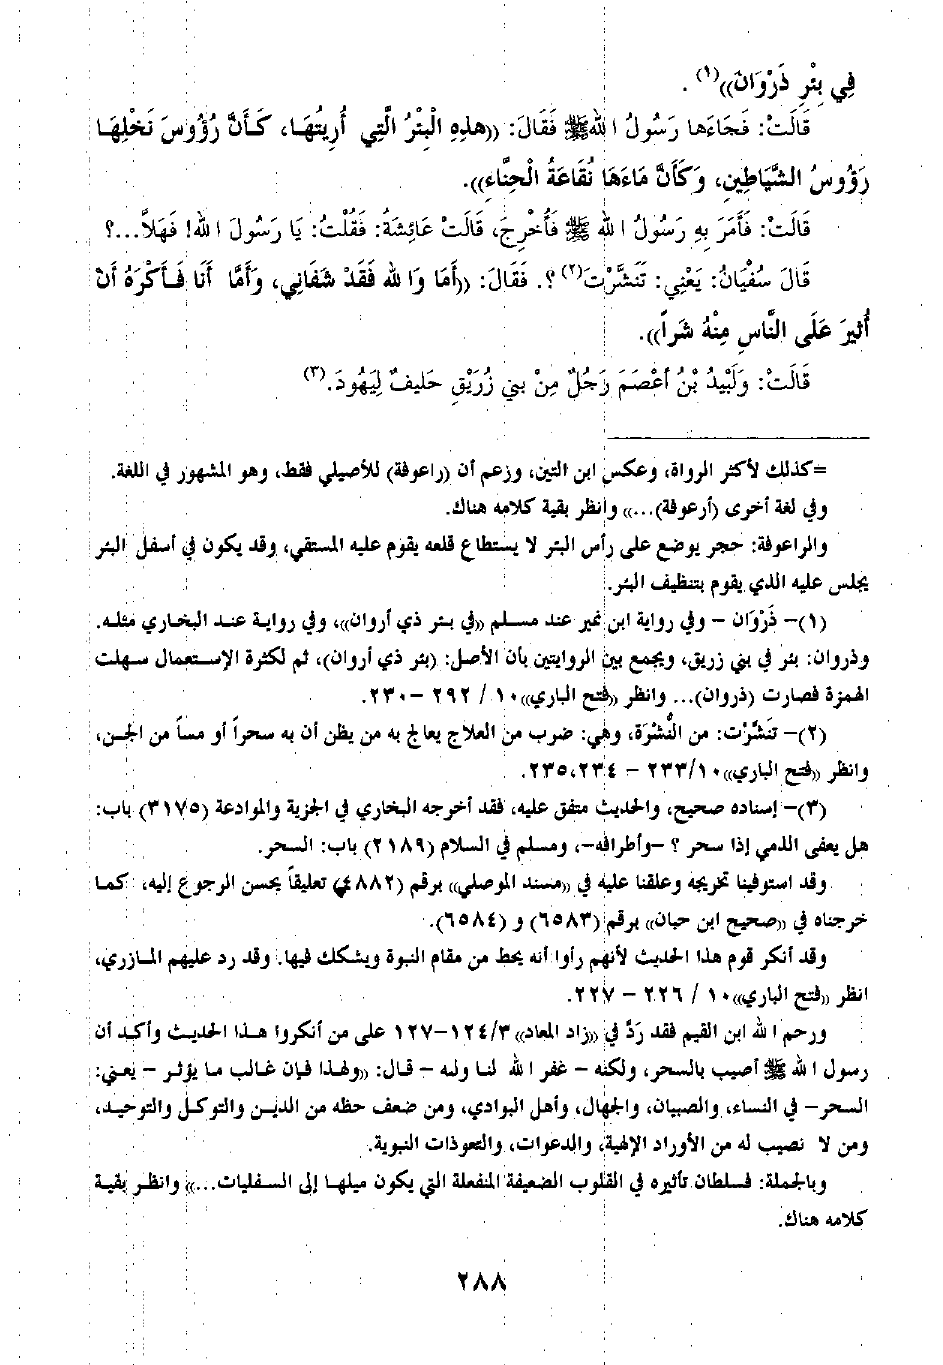 فِي بِئْرِ ذَرْوَانَ))(١).
قَالَتْ: فَجَاءَها رَسُولُ اللهِ ﷺ فَقَالَ: ((هذِهِ الْبِئْرُ الَّتِي أُرِيتُهَا، كَأَنَّ رُؤُوسَ نَخْلِهَا
رَؤُوسُ الشَّيَاطِينِ، وَكَأَنَّ مَاءَهَا نُقَاعَةُ الْحِنَّاءِ)).
قَالَتْ: فَأَمَرَ بِهِ رَسُولُ اللهِ ﷺ فَأُخْرِجَ، قَالَتْ عَائِشَةُ: فَقُلْتُ: يَا رَسُولَ اللهِ! فَهَلاَّ...؟
قَالَ سُفْيَانُ: يَعْنِي: تَنَشَّرْتَ(٢) ؟. فَقَالَ: ((أَمَا وَاللهِ فَقَدْ شَفَانِي، وَأَمَّا أَنَا فَأَكْرَهُ أَنْ
أُثيرَ عَلَى النَّاسِ مِنْهُ شَراً)).
قَالَتْ: وَلَبِيدُ بْنُ أَعْصَمَ رَجُلٌ مِنْ بَنِي زُرَيْقٍ حَليفٌ لِيَهُودَ.(٣)
=كذلك لأكثر الرواة، وعكس ابن التين، وزعم أن (راعوفة) للأصيلي فقط، وهو المشهور في اللغة.
وفي لغة أخرى (أرعوفة)...)) وانظر بقية كلامه هناك.
والراعوفة: حجر يوضع على رأس البئر لا يستطاع قلعه يقوم عليه المستقي، وقد يكون في أسفل البئر
يجلس عليه الذي يقوم بتنظيف البئر.
(١)- ذَرْوَان - وفي رواية ابن نمير عند مسلم ((في بئر ذي أروان))، وفي رواية عند البخاري مثله.
وذروان: بئر في بني زريق، ويجمع بين الروايتين بأن الأصل: (بئر ذي أروان)، ثم لكثرة الإستعمال سهلت
الهمزة فصارت (ذروان)... وانظر ((فتح الباري))١٠ / ٢٩٢ -٢٣٠.
(٢)- تنشَّرْت: من النُّشْرَة، وهي: ضرب من العلاج يعالج به من يظن أن به سحراً أو مساً من الجن،
وانظر ((فتح الباري))٢٣٣/١٠ - ٢٣٥،٢٣٤.
(٣)- إسناده صحيح، والحديث متفق عليه، فقد أخرجه البخاري في الجزية والموادعة (٣١٧٥) باب:
هل يعفى الذمي إذا سحر ؟ -وأطرافه-، ومسلم في السلام (٢١٨٩) باب: السحر.
وقد استوفينا تخريجه وعلقنا عليه في ((مسند الموصلي)) برقم (٤٨٨٢) تعليقاً يحسن الرجوع إليه، كما
خرجناه في ((صحيح ابن حبان)) برقم (٦٥٨٣) و (٦٥٨٤).
وقد أنكر قوم هذا الحديث لأنهم رأوا أنه يحط من مقام النبوة ويشكك فيها. وقد رد عليهم المازري،
انظر ((فتح الباري))١٠ / ٢٢٦ - ٢٢٧.
ورحم الله ابن القيم فقد رَدَّ في ((زاد المعاد)) ١٢٤/٣-١٢٧ على من أنكروا هذا الحديث وأكد أن
رسول الله ﷺ أصيب بالسحر، ولكنه - غفر الله لنا وله - قال: ((ولهذا فإن غالب ما يؤثر - يعني:
السحر- في النساء، والصبيان، والجهال، وأهل البوادي، ومن ضعف حظه من الدين والتوكل والتوحيد،
ومن لا نصيب له من الأوراد الإلهية، والدعوات، والتعوذات النبوية.
وبالجملة: فسلطان تأثيره في القلوب الضعيفة المنفعلة التي يكون ميلها إلى السفليات...)) وانظر بقية
كلامه هناك.
٢٨٨